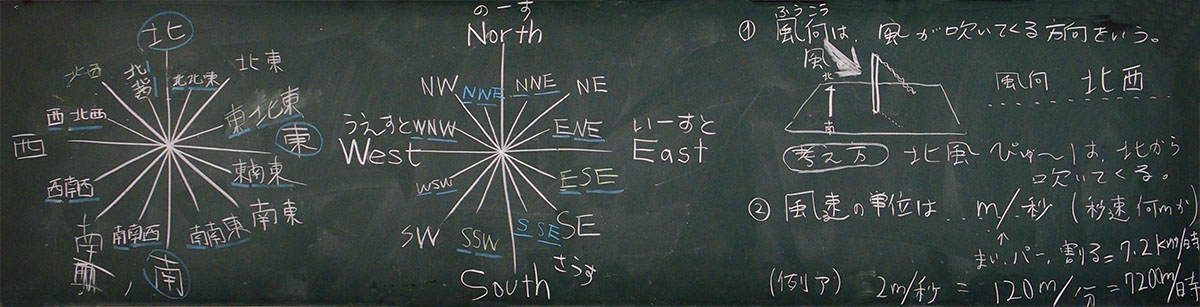 北
北西
北北東
北東
西北西
東北東
西
東
西南西
東南東
南
南南西
南南東
南東
南
のーす
North
NW
NNE
NNE
NE
うぇすと
WNW
ENE
いーすと
West
East
WSW
ESE
SW
SSW
SSE
SE
South
さうす
ふうこう
① 風向は、風が吹いてくる方向をいう。
風
北
南
風向 北西
考え方 北風ぴゅ〜は、北から
吹いてくる。
② 風速の単位は … m/秒 (秒速何mか
↑
まい、パー、割る
(例ア) 2m/秒 = 120m/分 = 7200m/時
= 7.2km/時